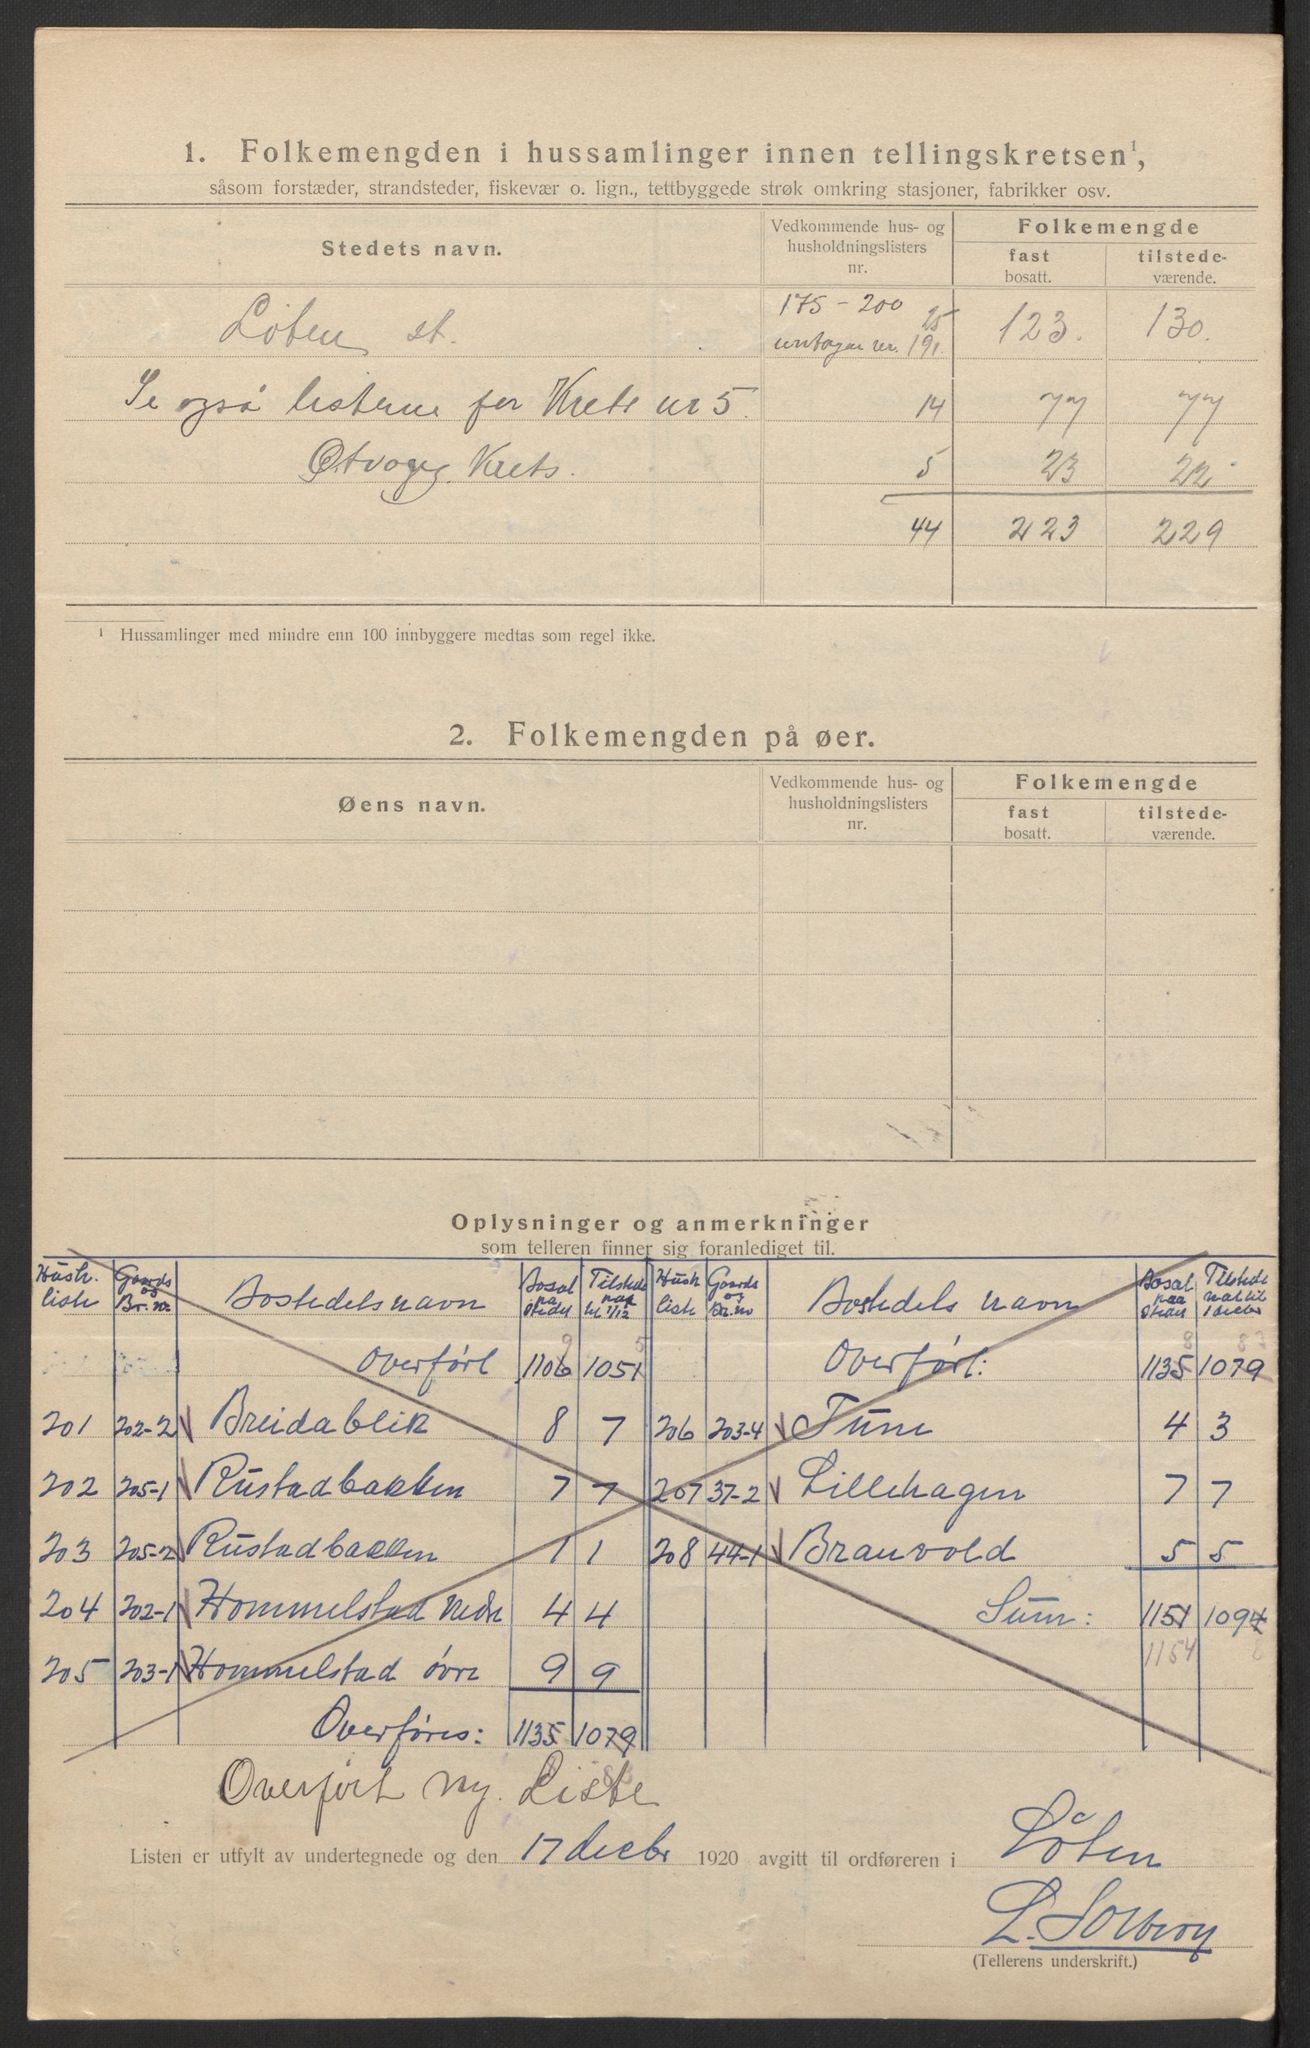 1. Folkemengden i hussamlinger innen tellingskretsen¹,
såsom forstæder, strandsteder, fiskevær o. lign., tettbyggede strøk omkring stasjoner, fabrikker osv.
Stedets navn. Vedkommende hus- og husholdningslisters nr. Folkemengde
fast bosatt. tilstede-værende.
Løten st. 175-200 untagen nr. 191. 25 123. 130.
Se også listerne for Krets nr 5. 14 77 77
Krets. 5 23 22
44 223 229
¹ Hussamlinger med mindre enn 100 innbyggere medtas som regel ikke.
2. Folkemengden på øer.
Øens navn. Vedkommende hus- og husholdningslisters nr. Folkemengde
fast bosatt. tilstede-værende.
Oplysninger og anmerkninger
som telleren finner sig foranlediget til.
Hush. liste Gaards og Br. nr Bostedets navn Bosat paa stedet Tilstede 1/12 Hush liste Gaards og Br. no Bostedets navn Bosat paa stedet Tilstede
Overført 1106 1051 Overført: 1135 1079
201 202-2 Breidablik 8 7 206 203-4 Tune 4 3
202 205-1 Rustadbakken 7 7 207 37-2 Lillehagen 7 7
203 205-2 Rustadbakken 1 1 208 44-1 Branvold 5 5
204 202-1 Hommelstad nedre 4 4 Sum: 1151 1094
205 203-1 Hommelstad øvre 9 9 1154 8
Overføres: 1135 1079
Overført ny. Liste
Listen er utfylt av undertegnede og den 17 decbr 1920 avgitt til ordføreren i Løten
L. Solberg
(Tellerens underskrift.)